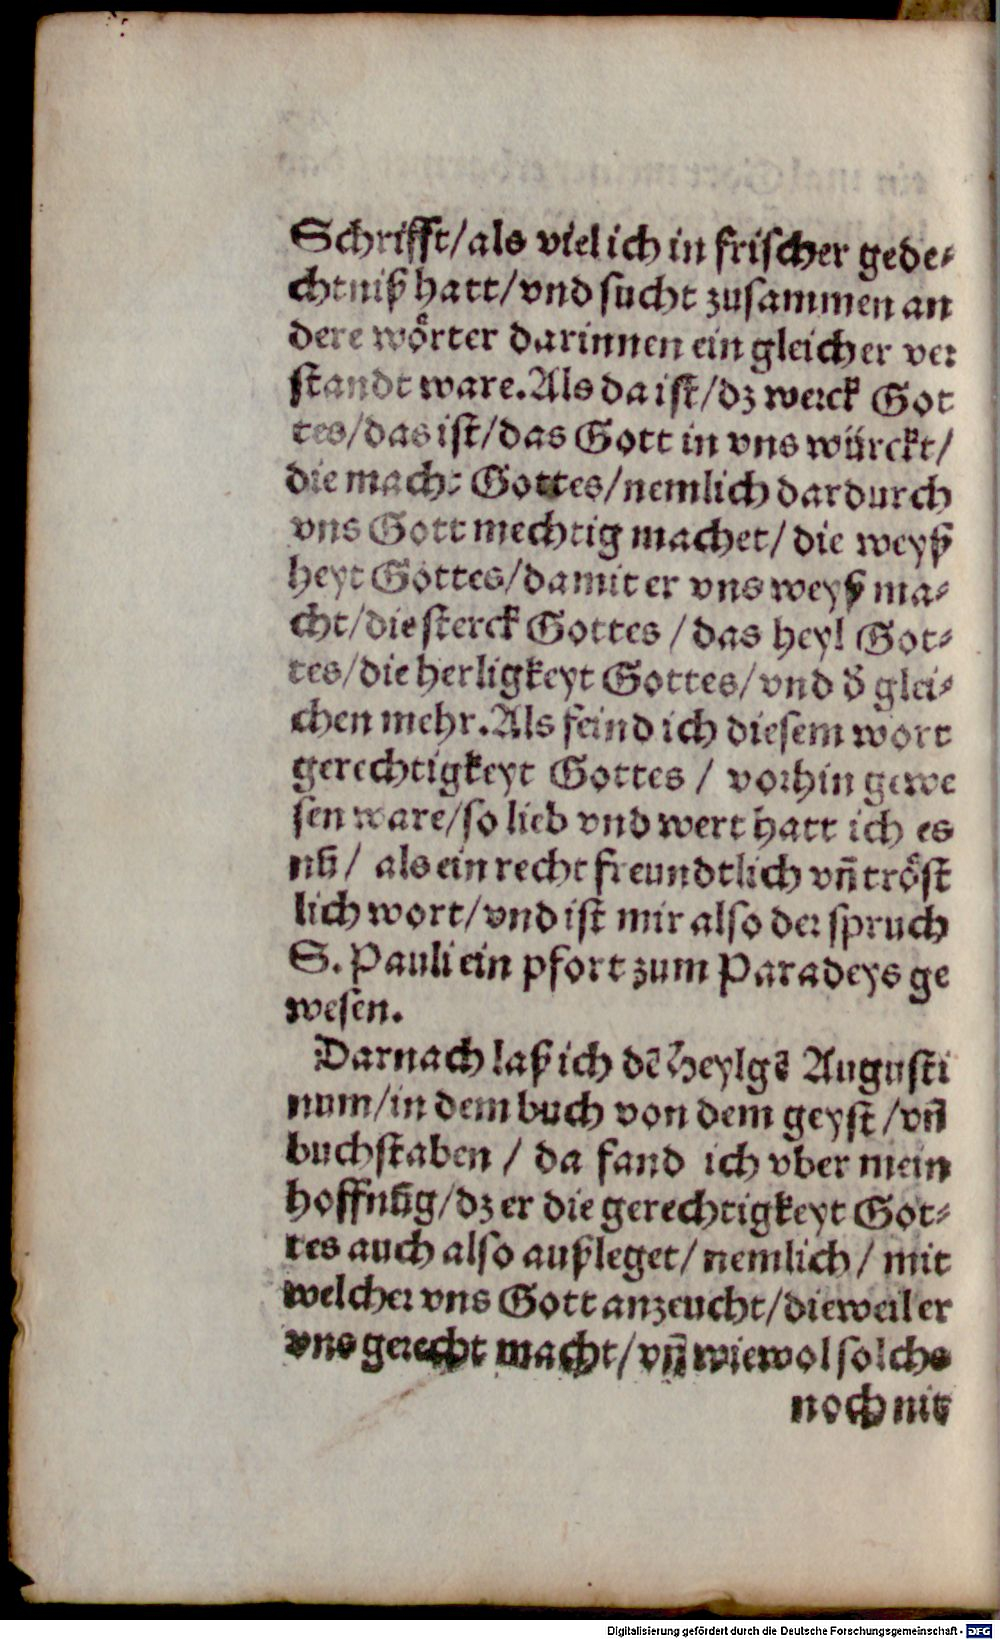 Schrifft/als viel ich in frischer gede⸗
chtniß hatt/vnd sucht zusammen an
dere wo̊rter darinnen ein gleicher ver
standt ware.Als da ist/dz werck Got
tes/das ist/das Gott in vns würckt/
die macht Gottes/nemlich dardurch
vns Gott mechtig machet/ die weyß
heyt Gottes/damit er vns weyß ma⸗
cht/die sterck Gottes /das heyl Got⸗
tes/die herligkeyt Gottes/vnd d̃ glei⸗
chen mehr.Als feind ich diesem wort
gerechtigkeyt Gottes / vorhin gewe
sen ware/so lieb vnd wert hatt ich es
nũ/ als ein recht freundtlich vñ trőst
lich wort/vnd ist mir also der spruch
S. Pauli ein pfort zum Paradeys ge
wesen.
Darnach laß ich dẽ Heylgẽ Augusti
num/in dem buch von dem geyst /vñ
buchstaben / da fand ich vber mein
hoffnũg/dz er die gerechtigkeyt Got⸗
tes auch also außleget/ nemlich / mit
welcher vns Gott anzeucht/dieweil er
vns gerecht macht/vñ wiewol solchs
noch nit
Digitalisierung gefördert durch die Deutsche Forschungsgemeinschaft - DFG